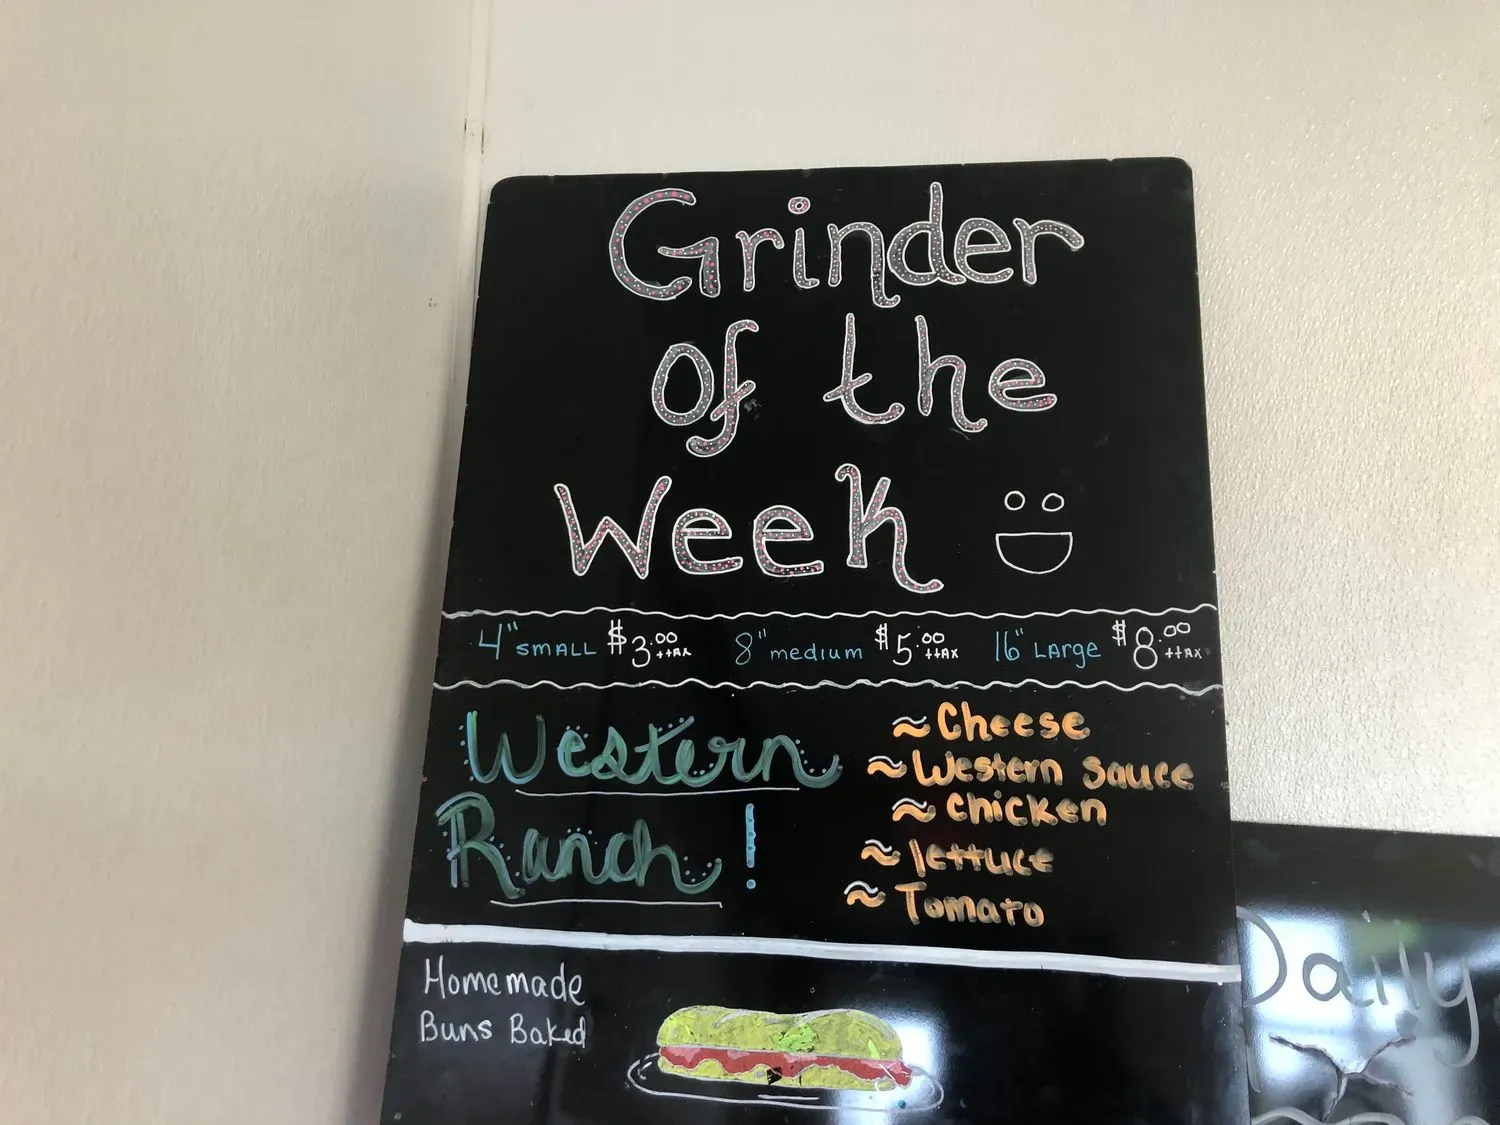 Grinder
of the
Week
4" SMALL $3.00 +tax 8" medium $5.00 +tax 16" LArge $8.00 +tax
Western
Ranch!
~ Cheese
~ Western Sauce
~ Chicken
~ lettuce
~ Tomato
Homemade
Buns Baked
Daily